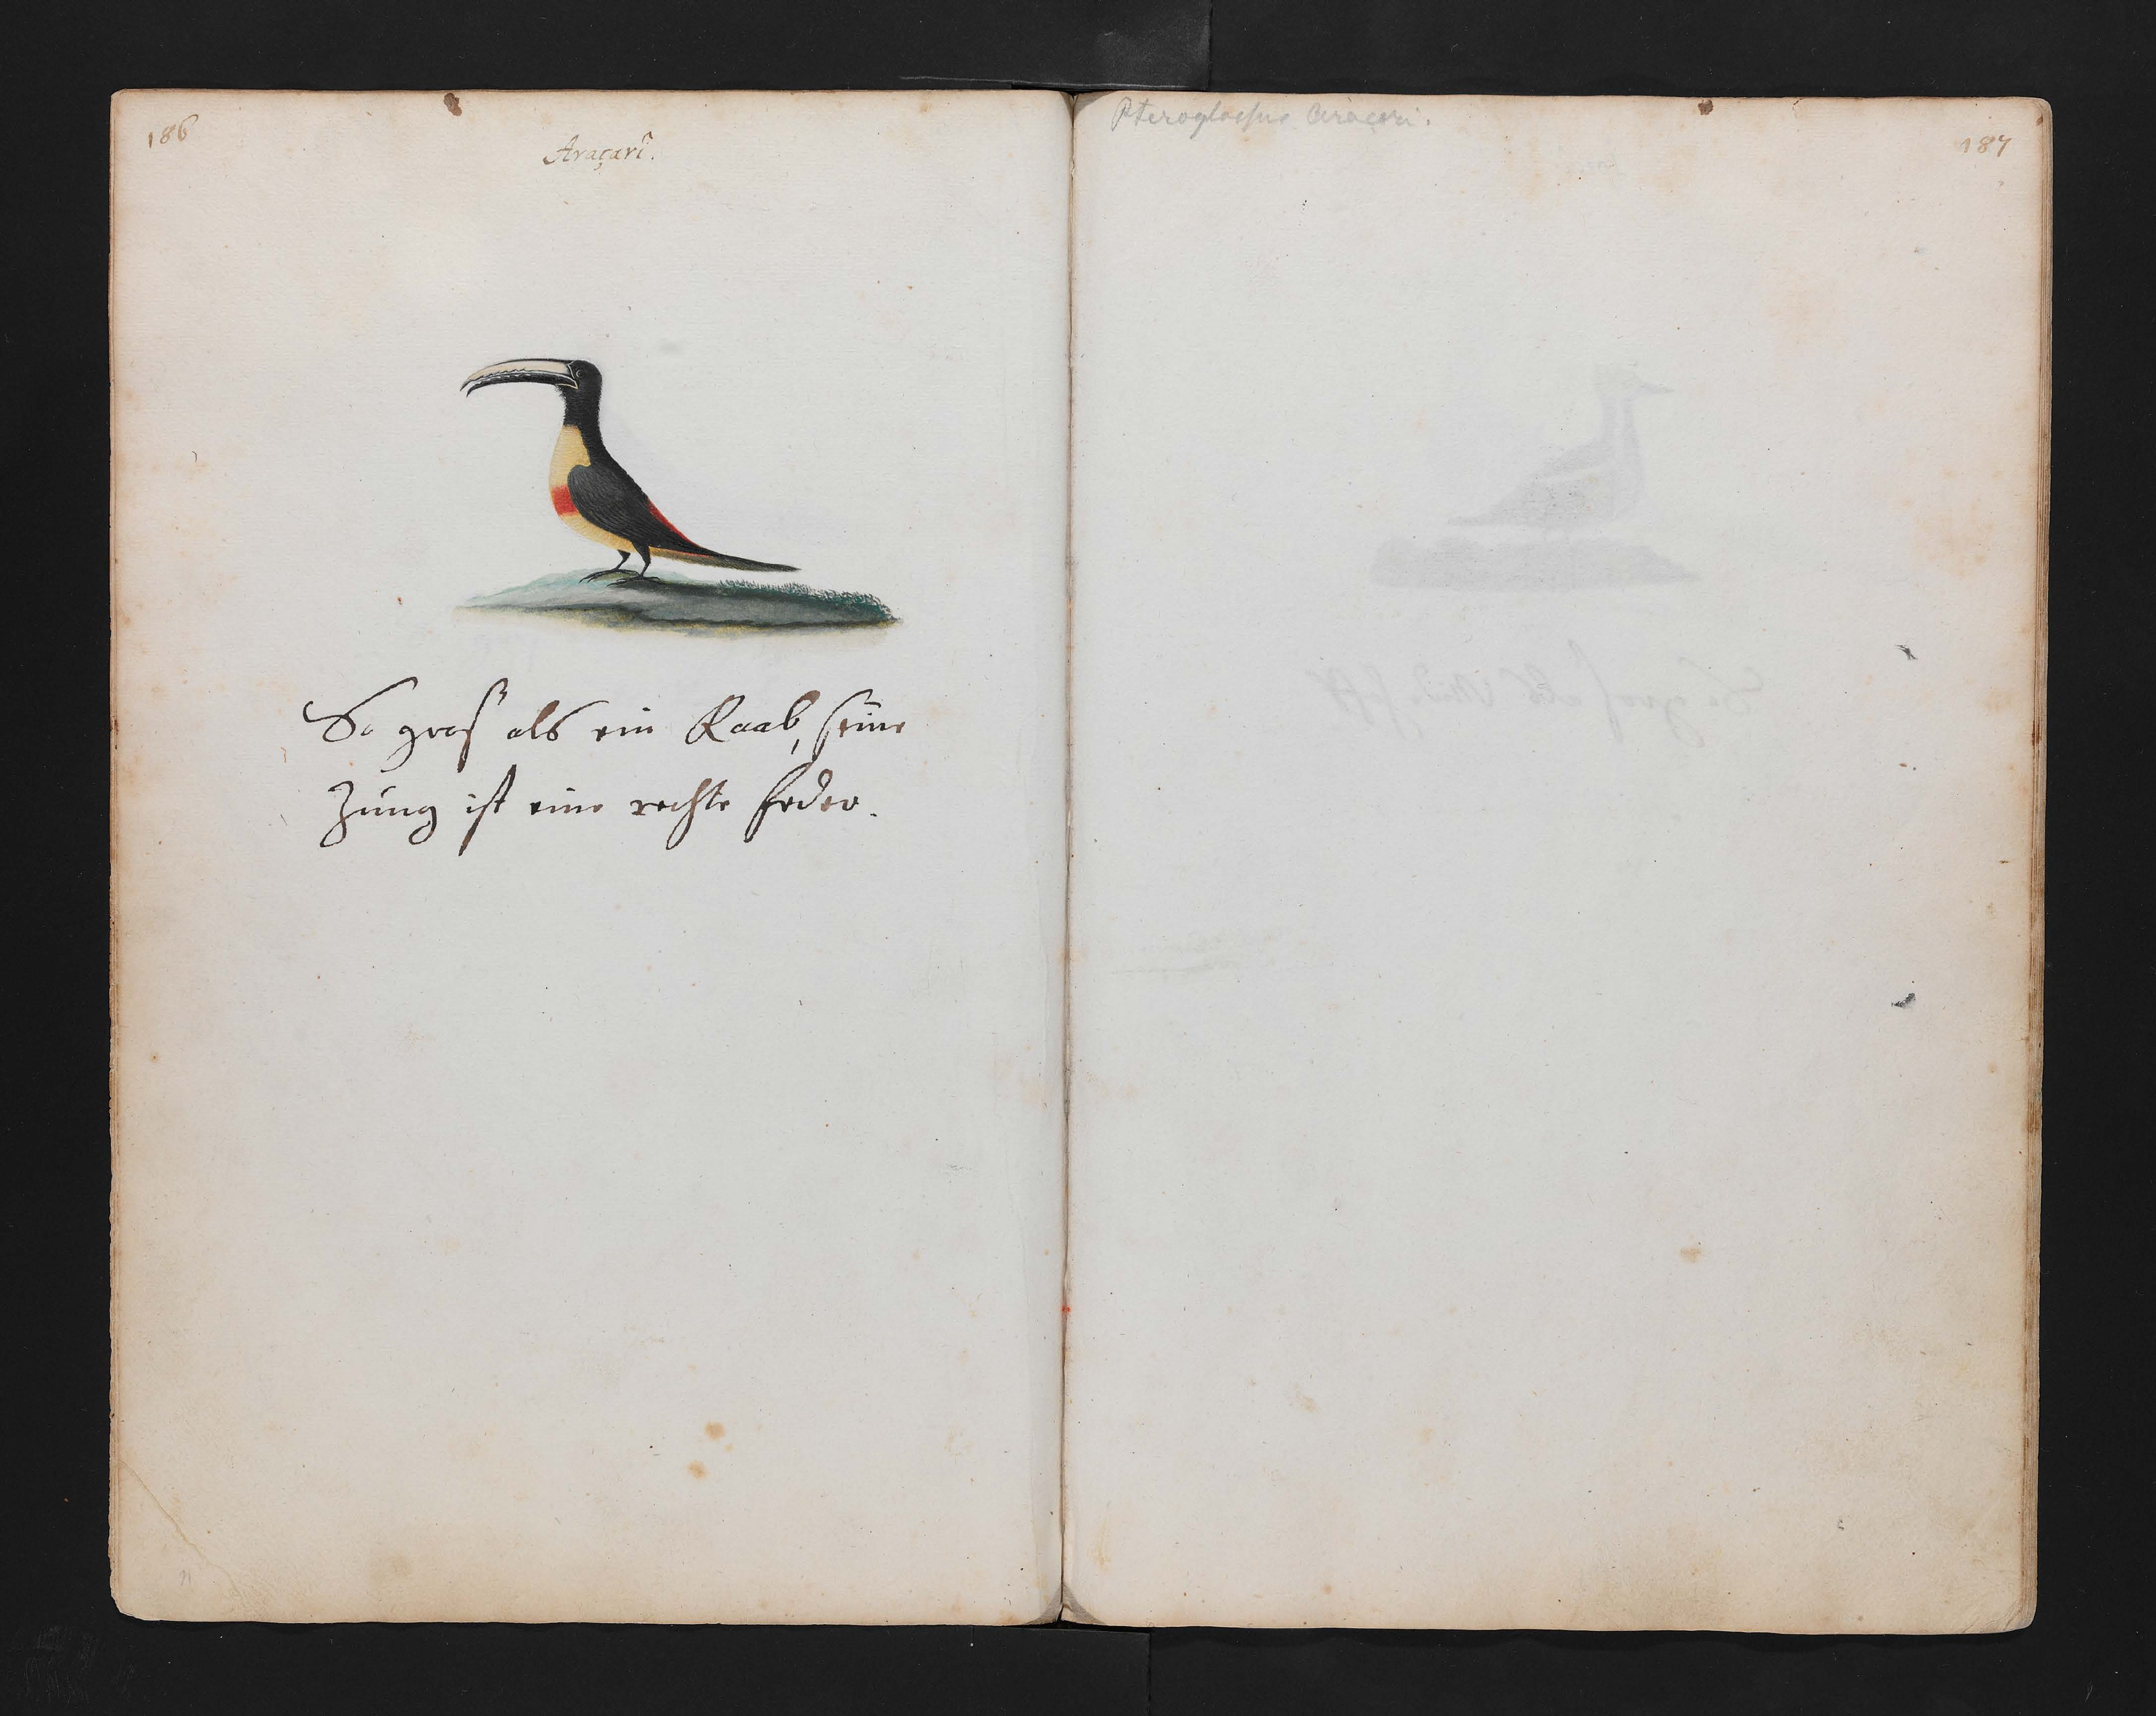 186
Araçari.
So gros als ein Raab, seine
Zung ist eine rechte feder.
Pteroglossus Araçari.
187